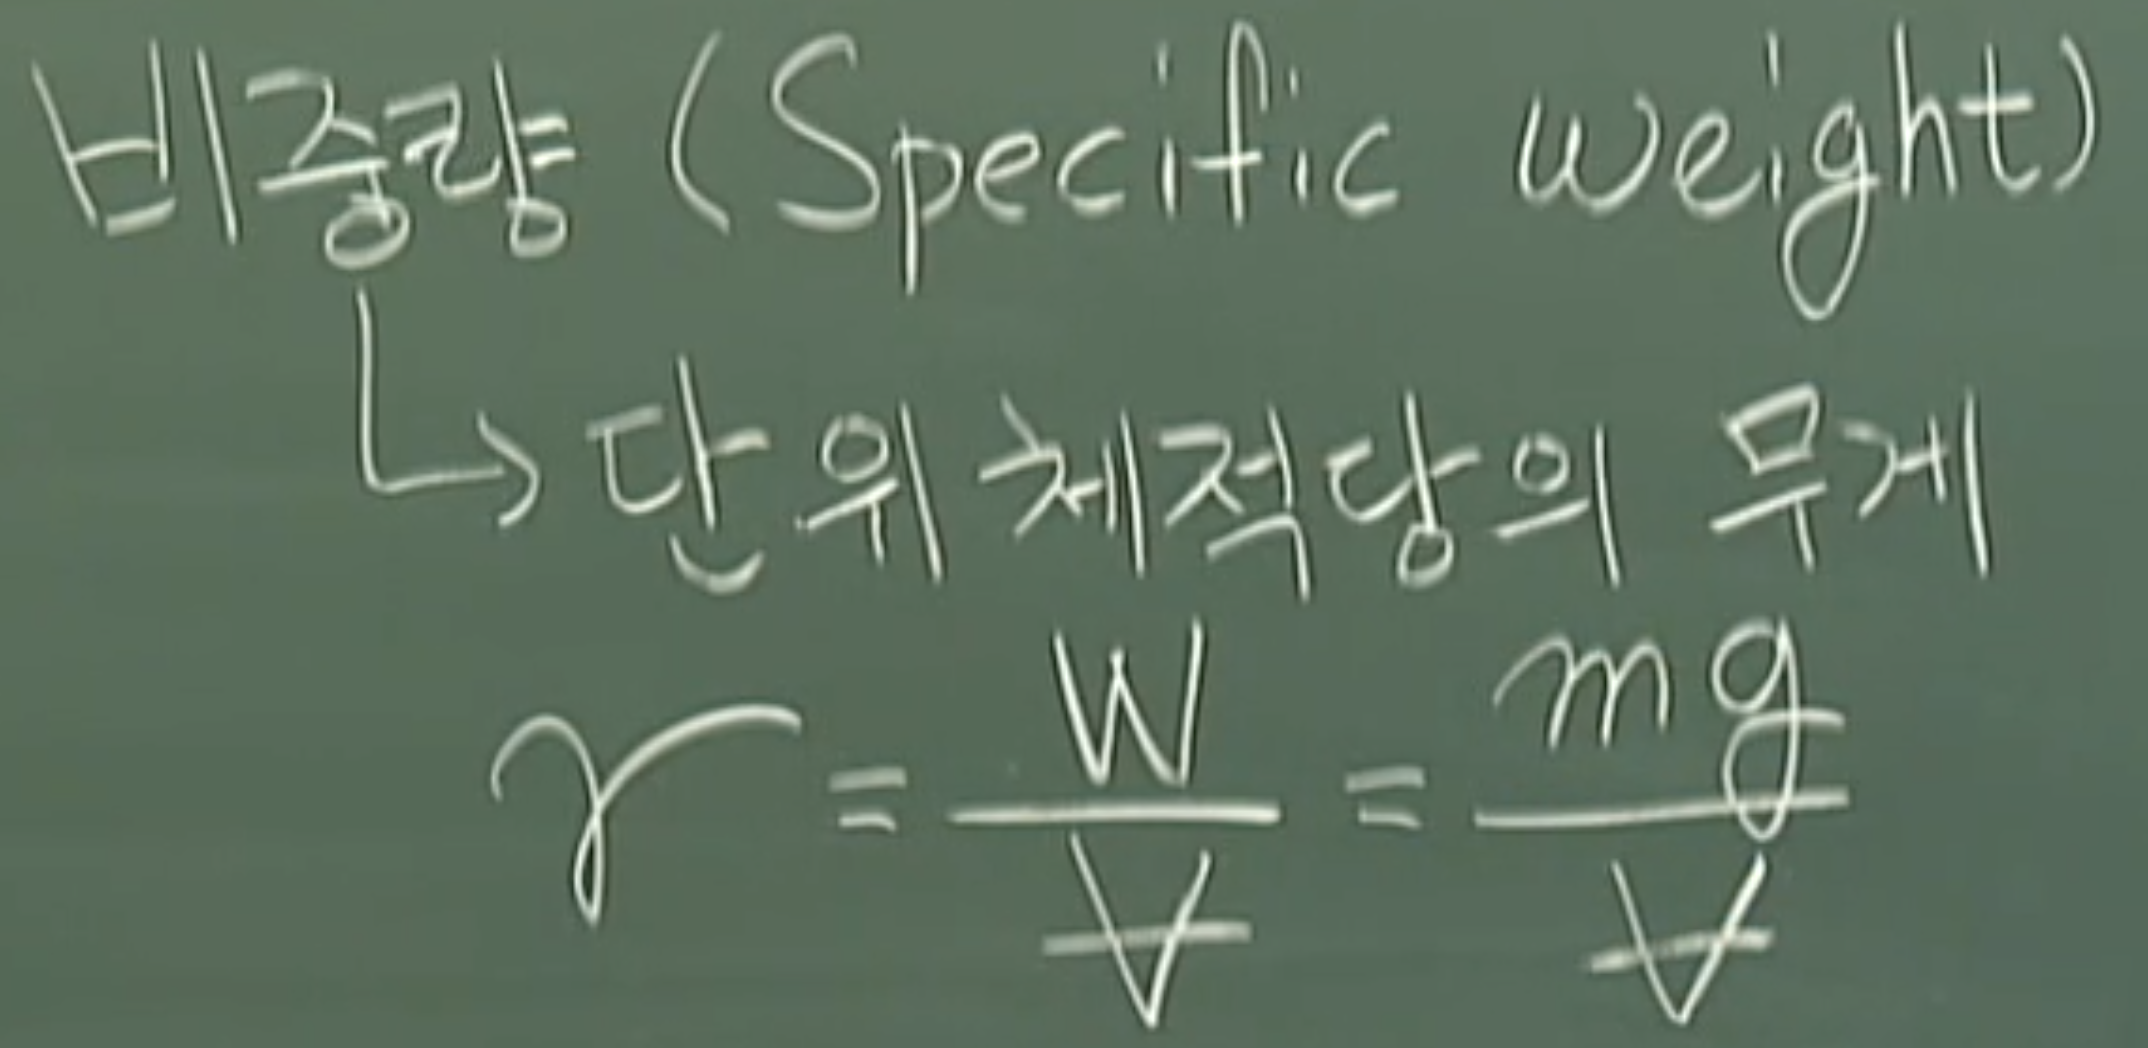 비중량 (Specific weight)
↳ 단위 체적당의 무게
γ = W/V̶ = mg/V̶